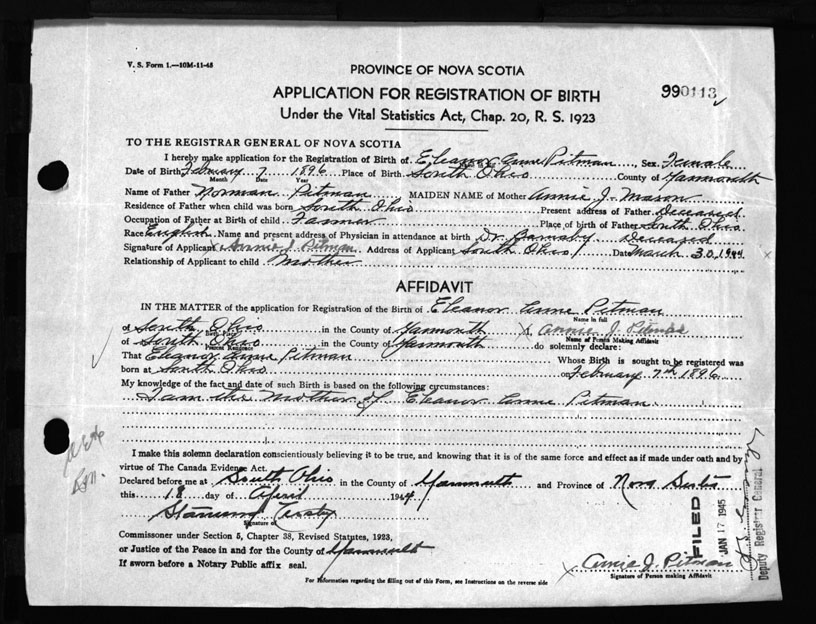 V. S. Form 1.—10M-11-43
PROVINCE OF NOVA SCOTIA
APPLICATION FOR REGISTRATION OF BIRTH
990113
Under the Vital Statistics Act, Chap. 20, R. S. 1923
TO THE REGISTRAR GENERAL OF NOVA SCOTIA
I hereby make application for the Registration of Birth of Eleanor Anne Pitman, Sex Female
Date of Birth February 7 1896 Place of Birth South Ohio County of Yarmouth
Month Date Year
Name of Father Norman Pitman MAIDEN NAME of Mother Annie J. Mason
Residence of Father when child was born South Ohio Present address of Father Deceased
Occupation of Father at Birth of child Farmer Place of birth of Father South Ohio
Race English Name and present address of Physician in attendance at birth Dr. Deceased
Signature of Applicant Annie J. Pitman Address of Applicant South Ohio Date March 30, 1944
Relationship of Applicant to child Mother
AFFIDAVIT
IN THE MATTER of the application for Registration of the Birth of Eleanor Anne Pitman
Name in full
of South Ohio in the County of Yarmouth I, Annie J. Pitman
Birth Place Name of Person Making Affidavit
of South Ohio in the County of Yarmouth do solemnly declare:
Present Residence
That Eleanor Anne Pitman Whose Birth is sought to be registered was
born at South Ohio on February 7th 1896
My knowledge of the fact and date of such Birth is based on the following circumstances:
I am the Mother of Eleanor Anne Pitman
I make this solemn declaration conscientiously believing it to be true, and knowing that it is of the same force and effect as if made under oath and by
virtue of The Canada Evidence Act.
Declared before me at South Ohio in the County of Yarmouth and Province of Nova Scotia
this 18 day of April 1944
Signature of
Commissioner under Section 5, Chapter 38, Revised Statutes, 1923,
or Justice of the Peace in and for the County of Yarmouth
If sworn before a Notary Public affix seal.
Annie J. Pitman
Signature of Person making Affidavit
For Information regarding the filling out of this Form, see Instructions on the reverse side
FILED
JAN 17 1945
Deputy Registrar General